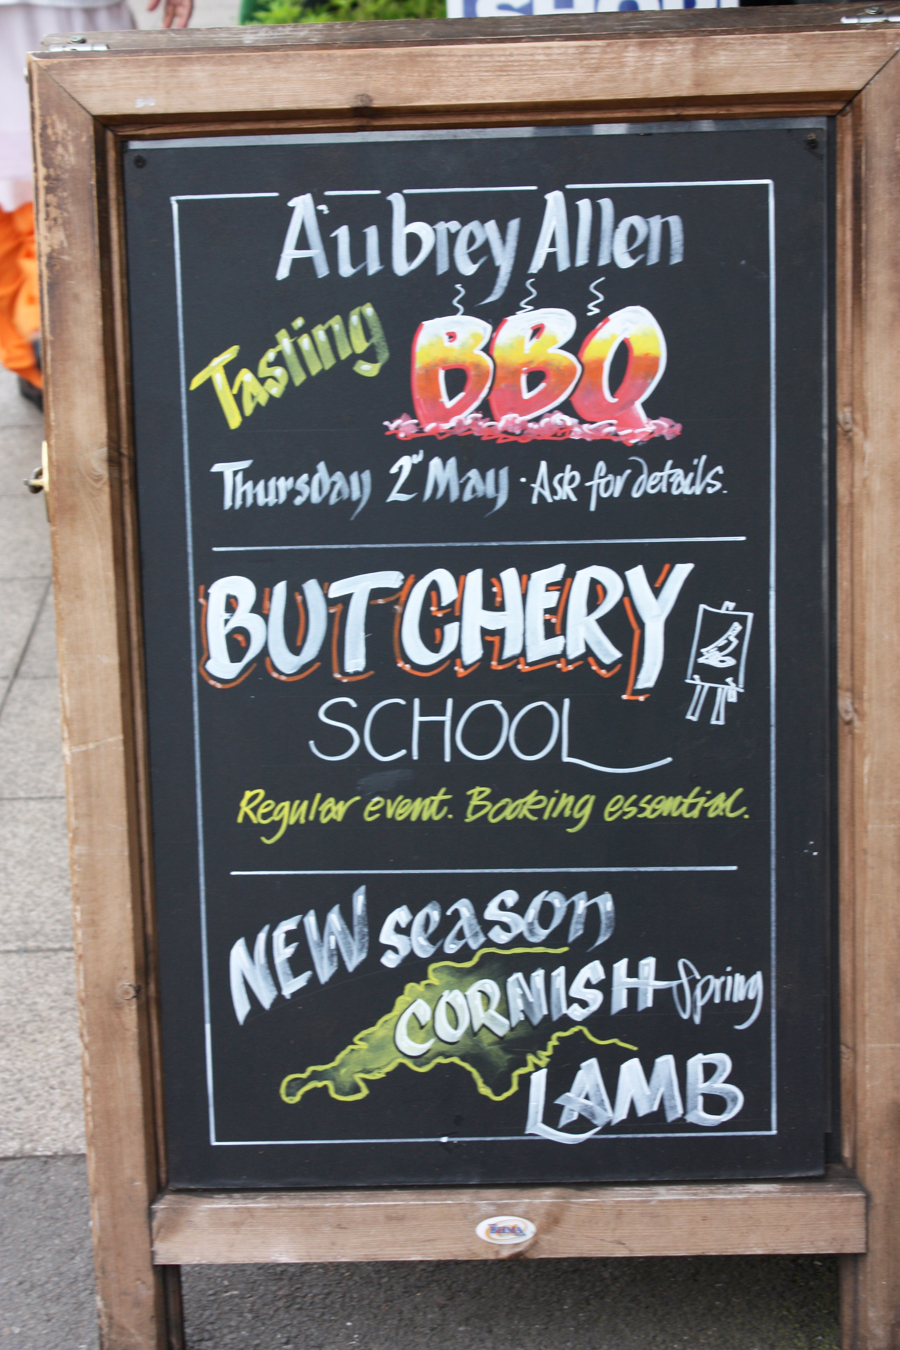 Aubrey Allen
Tasting BBQ
Thursday 2nd May · Ask for details.
BUTCHERY
SCHOOL
Regular event. Booking essential.
NEW season
CORNISH Spring
LAMB